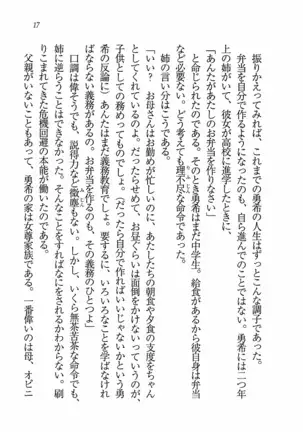 17
振りかえってみれば、これまでの勇希の人生はずっとこんな調子であった。
弁当を自分で作るようになったのも、自ら進んでのことではない。勇希には二つ年
上の姉がいて、彼女が高校に進学したときに、
「あんたがあたしのお弁当を作りなさい」
と命じられたのである。そのとき勇希はまだ中学生。給食があるから彼自身は弁当
など必要ない。どう考えても理不尽な命令であった。
姉の言い分はこうである。
「いい? お母さんはお勤めが忙しいのに、あたしたちの朝食や夕食の支度をちゃん
としてくれているのよ。だったらせめて、お昼ぐらいは面倒をかけないっていうのが、
子供としての務めってものでしょ。(だったら自分で作ればいいじゃないかという勇
希の反論に)あんたはまだ義務教育でしょ。要するに、いろいろなことを学ばなけれ
ばならない義務があるの。お弁当を作るのも、その義務のひとつよ」
口調は偉そうでも、説得力など微塵もない。しかし、いくら無茶苦茶な命令でも、
姉に逆らうことはできなかった。そんなことをすればなにをされるかわからない。刷
りこまれてきた危機回避の本能が働いたのである。
父親がいないこともあって、勇希の家は女尊家族である。一番偉いのは母、オピニ